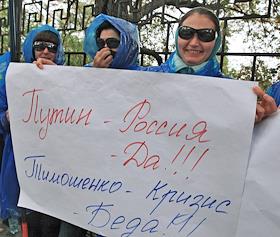 Путин - Россия
- Да!!!
Тимошенко - Кризис
- Беда!!!